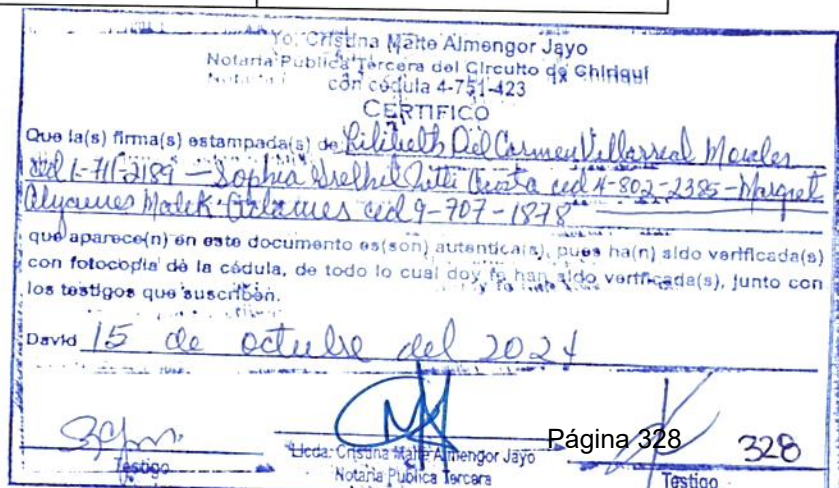 Yo, Cristina Maite Almengor Jayo
Notaria Pública Tercera del Circuito de Chiriquí
con cédula 4-751-423
CERTIFICO
Que la(s) firma(s) estampada(s) de Lilibeth Del Carmen Villarreal Morales
ced 1-711-2189 — Sophia Urelkil Pitti Acosta ced 4-802-2385 - Margret
Malek ced 9-707-1878
que aparece(n) en este documento es(son) autentica(s), pues ha(n) sido verificada(s)
con fotocopia de la cédula, de todo lo cual doy fe han sido verificada(s), junto con
los testigos que suscriben.
David 15 de octubre del 2024
Testigo
Licda. Cristina Maite Almengor Jayo
Notaria Pública Tercera
Página 328
328
Testigo